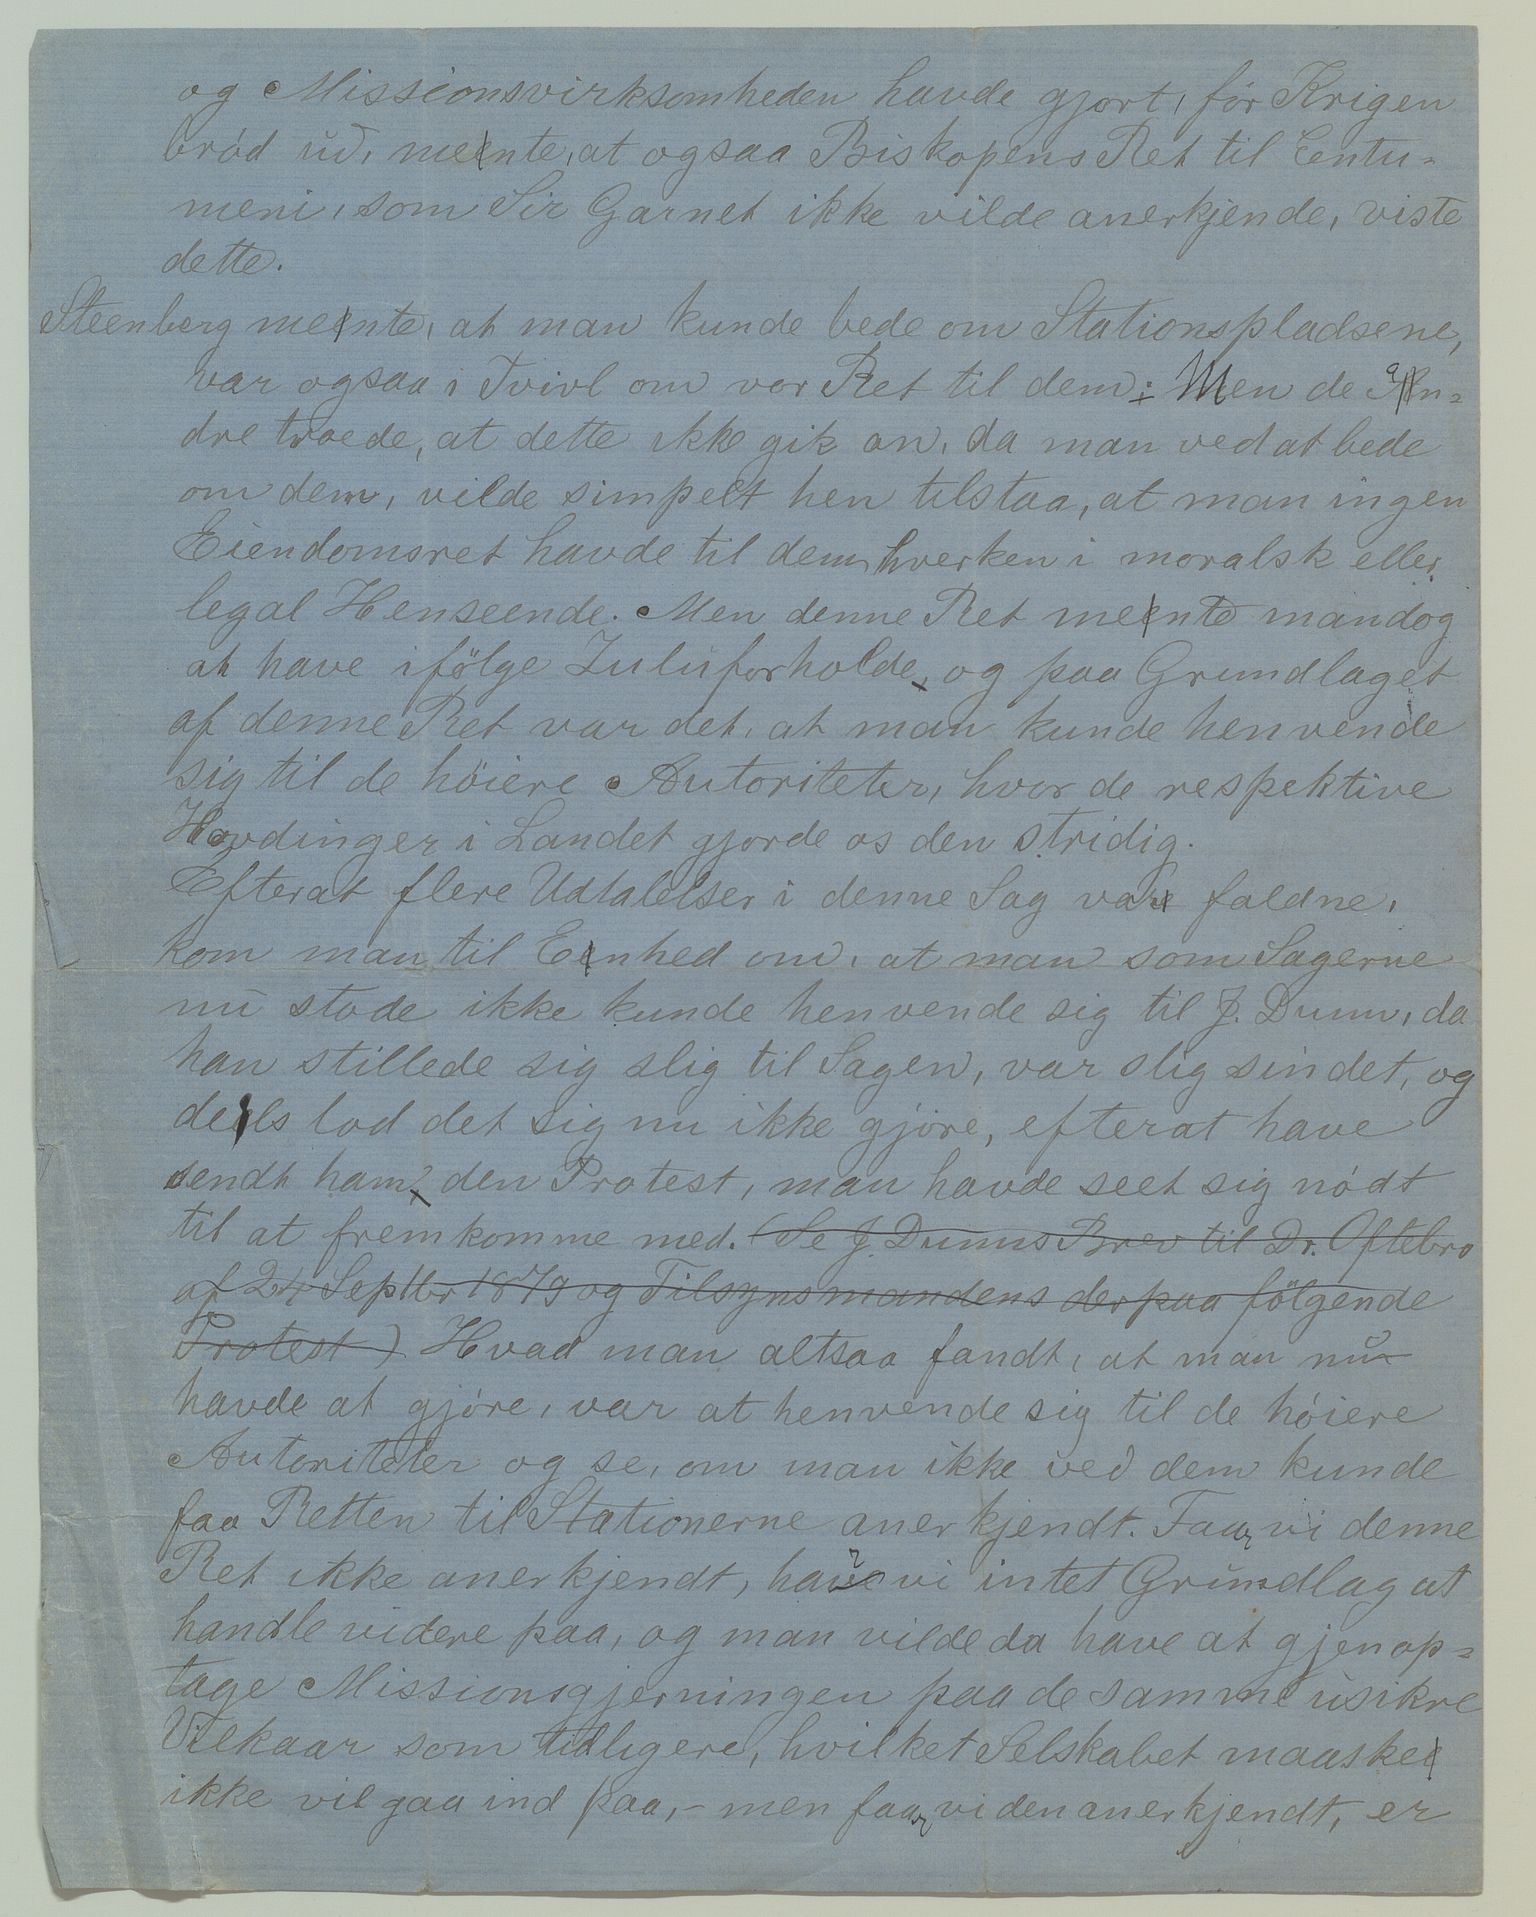 og Missionsvirksomheden havde gjort, før Krigen
bröd ud, mente, at ogsaa Biskopens Ret til Entu-
meni, som Sir Garnet ikke vilde anerkjende, viste
dette.
Steenberg mente, at man kunde bede om Stationspladsene,
var ogsaa i Tvivl om vor Ret til dem; Men de an-
dre troede, at dette ikke gik an, da man ved at bede
om dem, vilde simpelt hen tilstaa, at man ingen
Eiendomsret havde til dem hverken i moralsk eller
legal Henseende. Men denne Ret mente man dog
at have ifölge Zuluforholde, og paa Grundlaget
af denne Ret var det, at man kunde henvende
sig til de höiere Autoriteter, hvor de respektive
Hovdinger i Landet gjorde os den stridig.
Efterat flere Udtalelser i denne Sag var faldne,
kom man til Enhed om, at man som Sagerne
nu stode ikke kunde henvende sig til J. Dunn, da
han stillede sig slig til Sagen, var slig sindet, og
dels lod det sig nu ikke gjöre, efterat have
sendt ham den Protest, man havde seet sig nödt
til at fremkomme med. (Se J. Dunns Brev til Dr. Oftebro
af 24 Septbr 1879 og Tilsynsmandens derpaa fölgende
Protest) Hvad man altsaa fandt, at man nu
havde at gjöre, var at henvende sig til de höiere
Autoriteter og se, om man ikke ved dem kunde
faa Retten til Stationerne anerkjendt. Faar vi denne
Ret ikke anerkjendt, har vi intet Grundlag at
handle videre paa, og man vilde da have at gjenop-
tage Missionsgjerningen paa de samme usikre
Vilkaar som tidligere, hvilket Selskabet maaske
ikke vil gaa ind paa, - men faar vi den anerkjendt, er